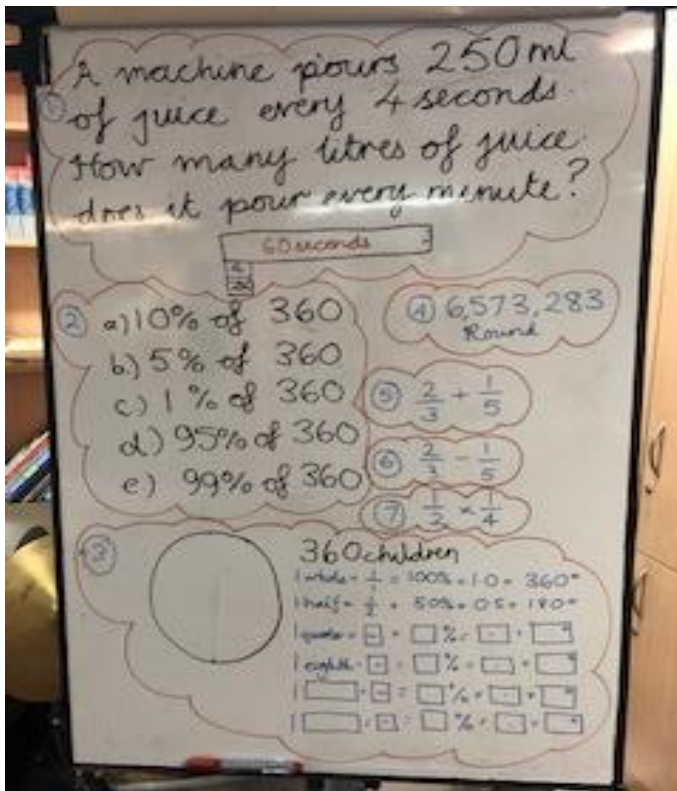 A machine pours 250ml
① of juice every 4 seconds.
How many litres of juice
does it pour every minute?
60 seconds
② a) 10% of 360
b) 5% of 360
c) 1% of 360
d) 95% of 360
e) 99% of 360
④ 6,573,283
Round
⑤ 2/3 + 1/5
⑥ 2/3 - 1/5
⑦ 1/2 × 1/4
③
360 children
1 whole = 1/1 = 100% = 1.0 = 360°
1 half = 1/2 = 50% = 0.5 = 180°
1 quarter = □ = □% = □ = □°
1 eighth = □ = □% = □ = □°
1 □ = □ = □% = □ = □°
1 □ = □ = □% = □ = □°